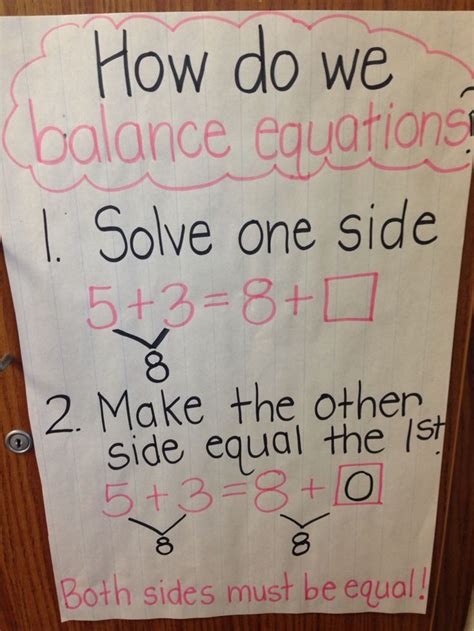 How do we
balance equations?
1. Solve one side
5+3=8+□
8
2. Make the other
side equal the 1st.
5+3=8+0
8 8
Both sides must be equal!